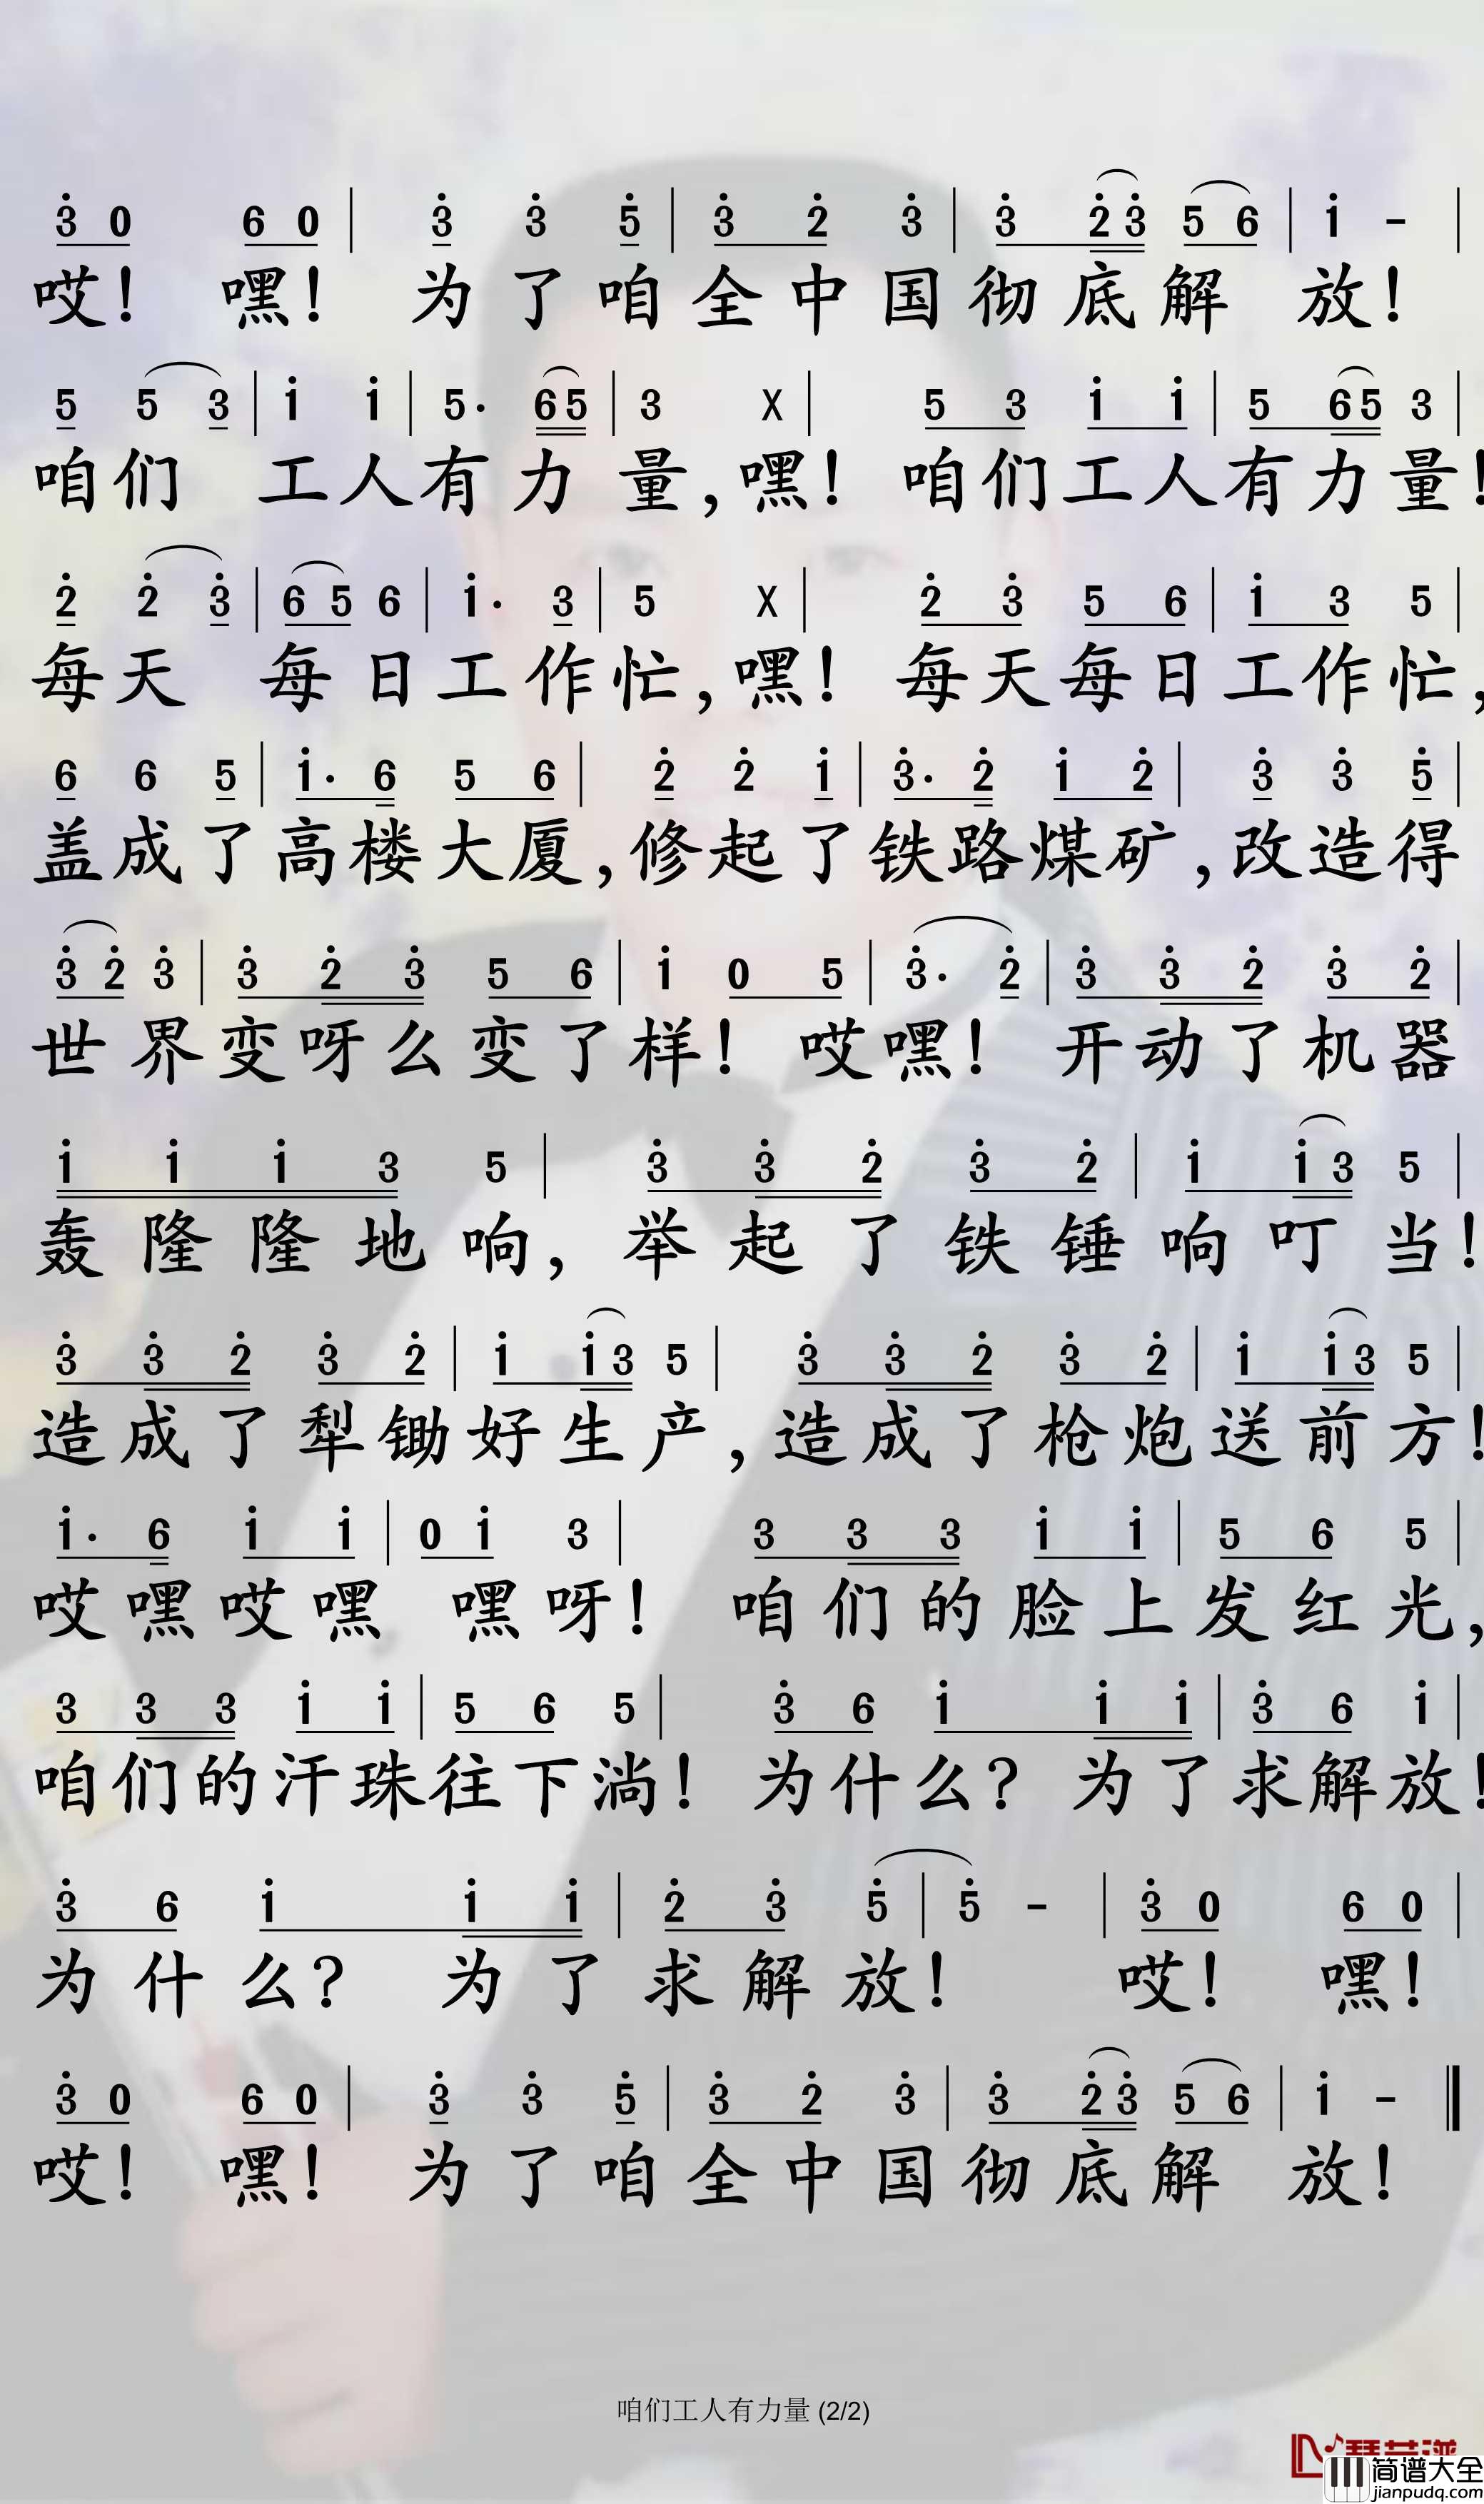 3̇ 0 6 0 | 3̇ 3̇ 5̇ | 3̇ 2̇ 3̇ | 3̇ 2̇ 3̇ 5 6 | 1̇ - |
哎! 嘿! 为了咱全中国彻底解放!
5 5 3 | 1̇ 1̇ | 5· 6 5 | 3 X | 5 3 1̇ 1̇ | 5 6 5 3 |
咱们工人有力量,嘿! 咱们工人有力量!
2̇ 2̇ 3̇ | 6 5 6 | 1̇· 3 | 5 X | 2̇ 3̇ 5 6 | 1̇ 3 5 |
每天每日工作忙,嘿! 每天每日工作忙,
6 6 5 | 1̇· 6 5 6 | 2̇ 2̇ 1̇ | 3̇· 2̇ 1̇ 2̇ | 3̇ 3̇ 5̇ |
盖成了高楼大厦,修起了铁路煤矿,改造得
3̇ 2̇ 3̇ | 3̇ 2̇ 3̇ 5 6 | 1̇ 0 5 | 3̇· 2̇ | 3̇ 3̇ 2̇ 3̇ 2̇ |
世界变呀么变了样! 哎嘿! 开动了机器
1̇ 1̇ 1̇ 3 5 | 3̇ 3̇ 2̇ 3̇ 2̇ | 1̇ 1̇ 3 5 |
轰隆隆地响,举起了铁锤响叮当!
3̇ 3̇ 2̇ 3̇ 2̇ | 1̇ 1̇ 3 5 | 3̇ 3̇ 2̇ 3̇ 2̇ | 1̇ 1̇ 3 5 |
造成了犁锄好生产,造成了枪炮送前方!
1̇· 6 1̇ 1̇ | 0 1̇ 3 | 3 3 3 1̇ 1̇ | 5 6 5 |
哎嘿哎嘿 嘿呀! 咱们的脸上发红光,
3 3 3 1̇ 1̇ | 5 6 5 | 3̇ 6 1̇ 1̇ 1̇ | 3̇ 6 1̇ |
咱们的汗珠往下淌! 为什么? 为了求解放!
3̇ 6 1̇ 1̇ 1̇ | 2̇ 3̇ 5̇ | 5̇ - | 3̇ 0 6 0 |
为什么? 为了求解放! 哎! 嘿!
3̇ 0 6 0 | 3̇ 3̇ 5̇ | 3̇ 2̇ 3̇ | 3̇ 2̇ 3̇ 5 6 | 1̇ - ‖
哎! 嘿! 为了咱全中国彻底解放!
咱们工人有力量 (2/2)
简谱大全
jianpudq.com